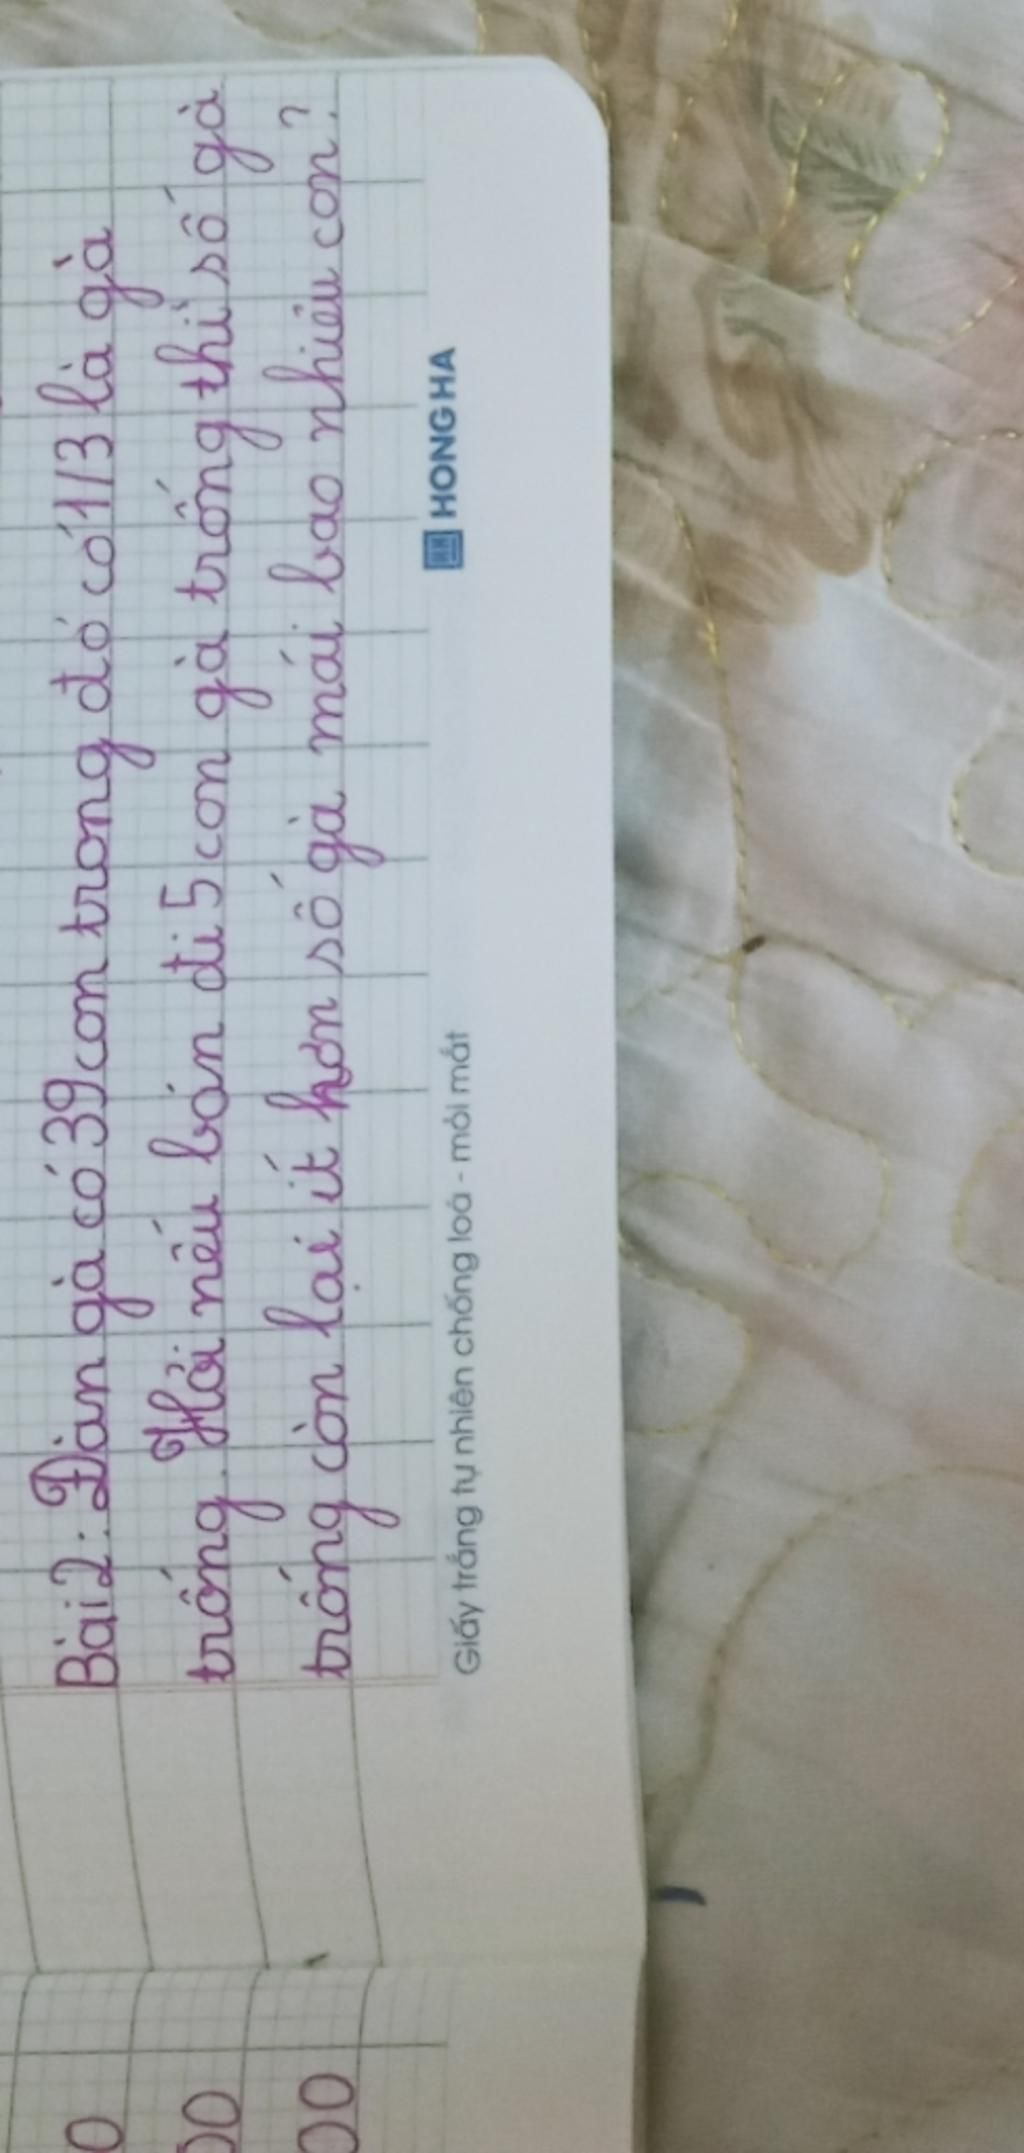 Bài 2: Đàn gà có 39 con trong đó có 1/3 là gà
trống. Hỏi nếu bán đi 5 con gà trống thì số gà
trống còn lại ít hơn số gà mái bao nhiêu con?
Giấy trắng tự nhiên chống loá - mỏi mắt
HONG HA
0
00
00